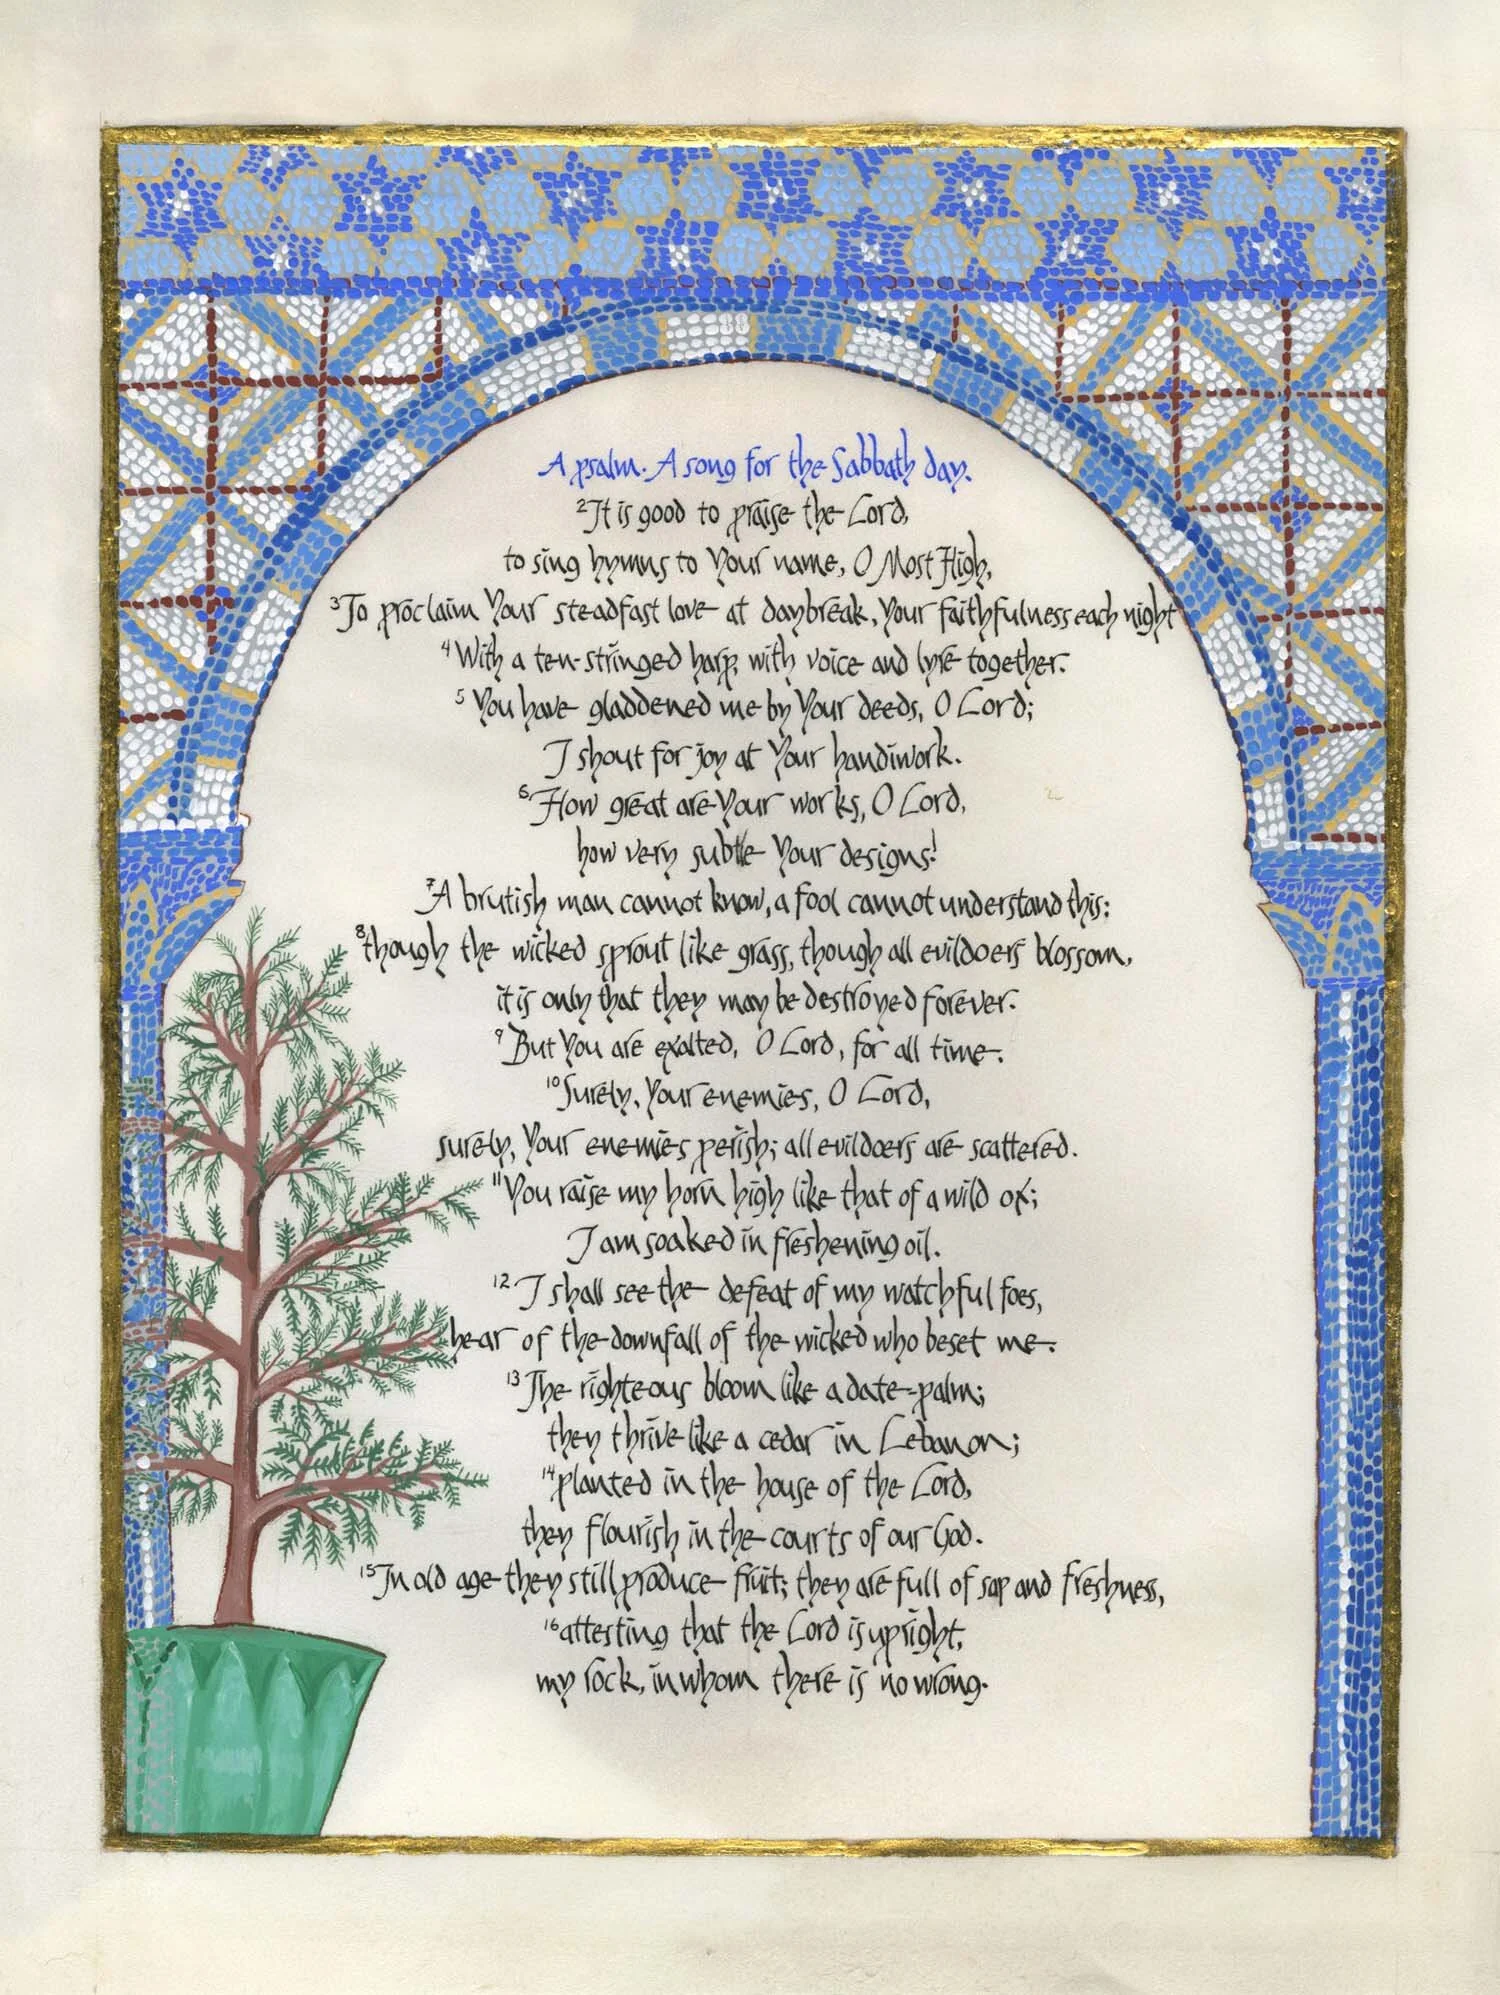 A psalm. A song for the Sabbath day.
2 It is good to praise the Lord,
to sing hymns to Your name, O Most High,
3 To proclaim Your steadfast love at daybreak, Your faithfulness each night
4 With a ten-stringed harp, with voice and lyre together.
5 You have gladdened me by Your deeds, O Lord;
I shout for joy at Your handiwork.
6 How great are Your works, O Lord,
how very subtle Your designs!
7 A brutish man cannot know, a fool cannot understand this:
8 though the wicked sprout like grass, though all evildoers blossom,
it is only that they may be destroyed forever.
9 But You are exalted, O Lord, for all time.
10 Surely, Your enemies, O Lord,
surely, Your enemies perish; all evildoers are scattered.
11 You raise my horn high like that of a wild ox;
I am soaked in freshening oil.
12 I shall see the defeat of my watchful foes,
hear of the downfall of the wicked who beset me.
13 The righteous bloom like a date-palm;
they thrive like a cedar in Lebanon;
14 planted in the house of the Lord,
they flourish in the courts of our God.
15 In old age they still produce fruit; they are full of sap and freshness,
16 attesting that the Lord is upright,
my rock, in whom there is no wrong.